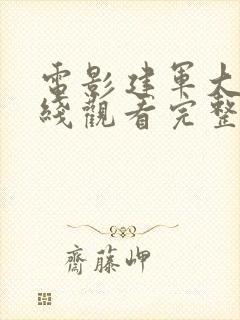 電影建軍大
綫觀看完整
齋藤岬